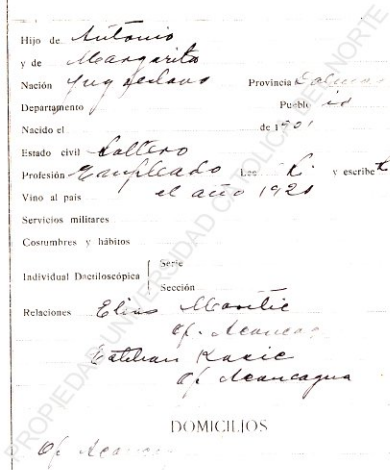 Hijo de Antonio
y de Margarita
Nación Yugoslavo Provincia Dalmac
Departamento Pueblo id
Nacido el de 1901
Estado civil Soltero
Profesión Empleado Lee X. y escribe X
Vino al país el año 1921
Servicios militares
Costumbres y hábitos
Individual Dactiloscópica { Serie
Sección
Relaciones Elias
Of. Aconcag
Esteban Kacic
Of Aconcagua
DOMICILIOS
Of
PROPIEDAD UNIVERSIDAD CATOLICA DEL NORTE